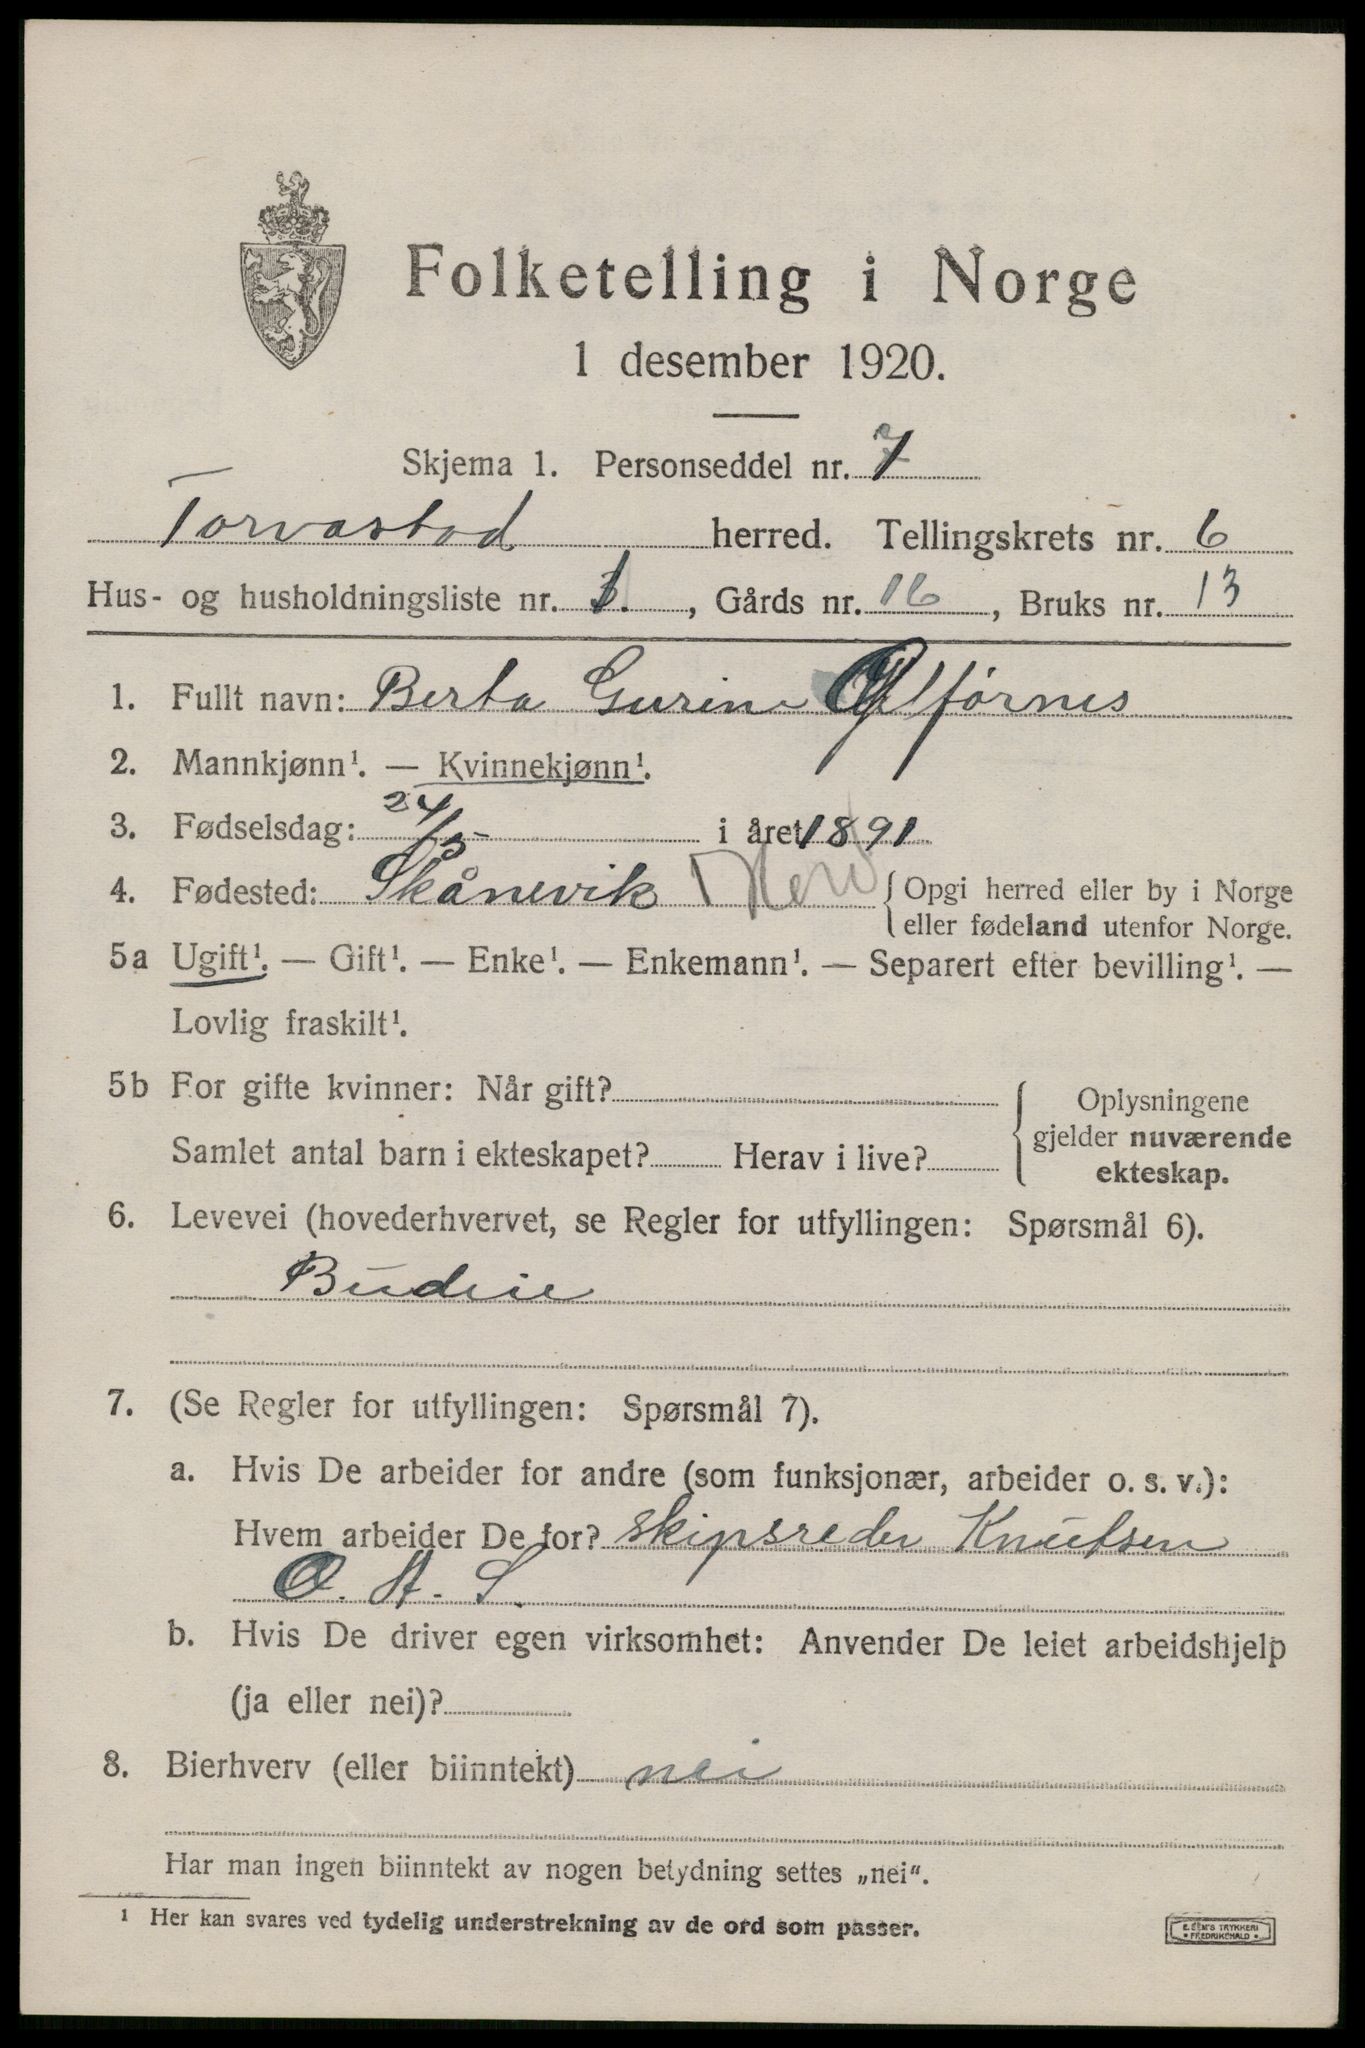 Folketelling i Norge
1 desember 1920.
Skjema 1. Personseddel nr. 7
Torvastad herred. Tellingskrets nr. 6
Hus- og husholdningsliste nr. 1., Gårds nr. 16, Bruks nr. 13
1. Fullt navn: Berta Gurine Ølførnes
2. Mannkjønn¹. — Kvinnekjønn¹.
3. Fødselsdag: 24/5- i året 1891
4. Fødested: Skånevik Herø {Opgi herred eller by i Norge
eller fødeland utenfor Norge.
5a Ugift¹. — Gift¹. — Enke¹. — Enkemann¹. — Separert efter bevilling¹. —
Lovlig fraskilt¹.
5b For gifte kvinner: Når gift?
Samlet antal barn i ekteskapet? Herav i live?
Oplysningene
gjelder nuværende
ekteskap.
6. Levevei (hovederhvervet, se Regler for utfyllingen: Spørsmål 6).
Budeie
7. (Se Regler for utfyllingen: Spørsmål 7).
a. Hvis De arbeider for andre (som funksjonær, arbeider o. s. v.):
Hvem arbeider De for? skipsreder Knutsen
O. A. S.
b. Hvis De driver egen virksomhet: Anvender De leiet arbeidshjelp
(ja eller nei)?
8. Bierhverv (eller biinntekt) nei
Har man ingen biinntekt av nogen betydning settes „nei“.
¹ Her kan svares ved tydelig understrekning av de ord som passer.
E. SEM'S TRYKKERI
FREDRIKSHALD